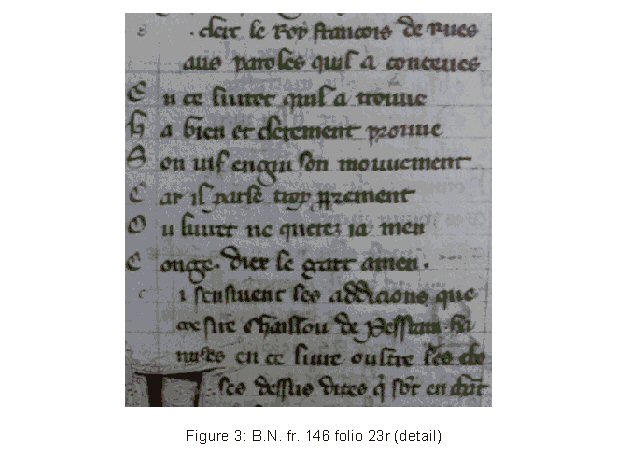 . clerc le roy francois de rues
aus paroles quil a conceues
E n ce liuret quil a trouue
h a bien et clerement prouue
S on uif engin son mouuement
C ar il parle trop pprement
O u liuret ne querez ia men
C onge. diex le gart amen.
c i sensiuent les addicions que
mesire chaillou de pesstain ha
mises en ce liure oultre les cho
ses dessus dites q̄ sōt en chāt
Figure 3: B.N. fr. 146 folio 23r (detail)